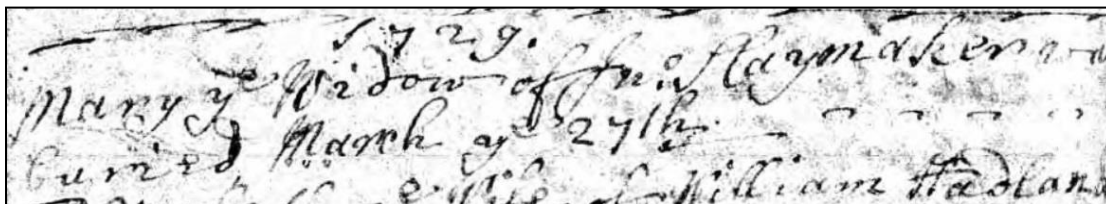 1729.
Mary ye Widow of Jno Slaymaker wa
buried March ye 27th
Wife of William Hadland